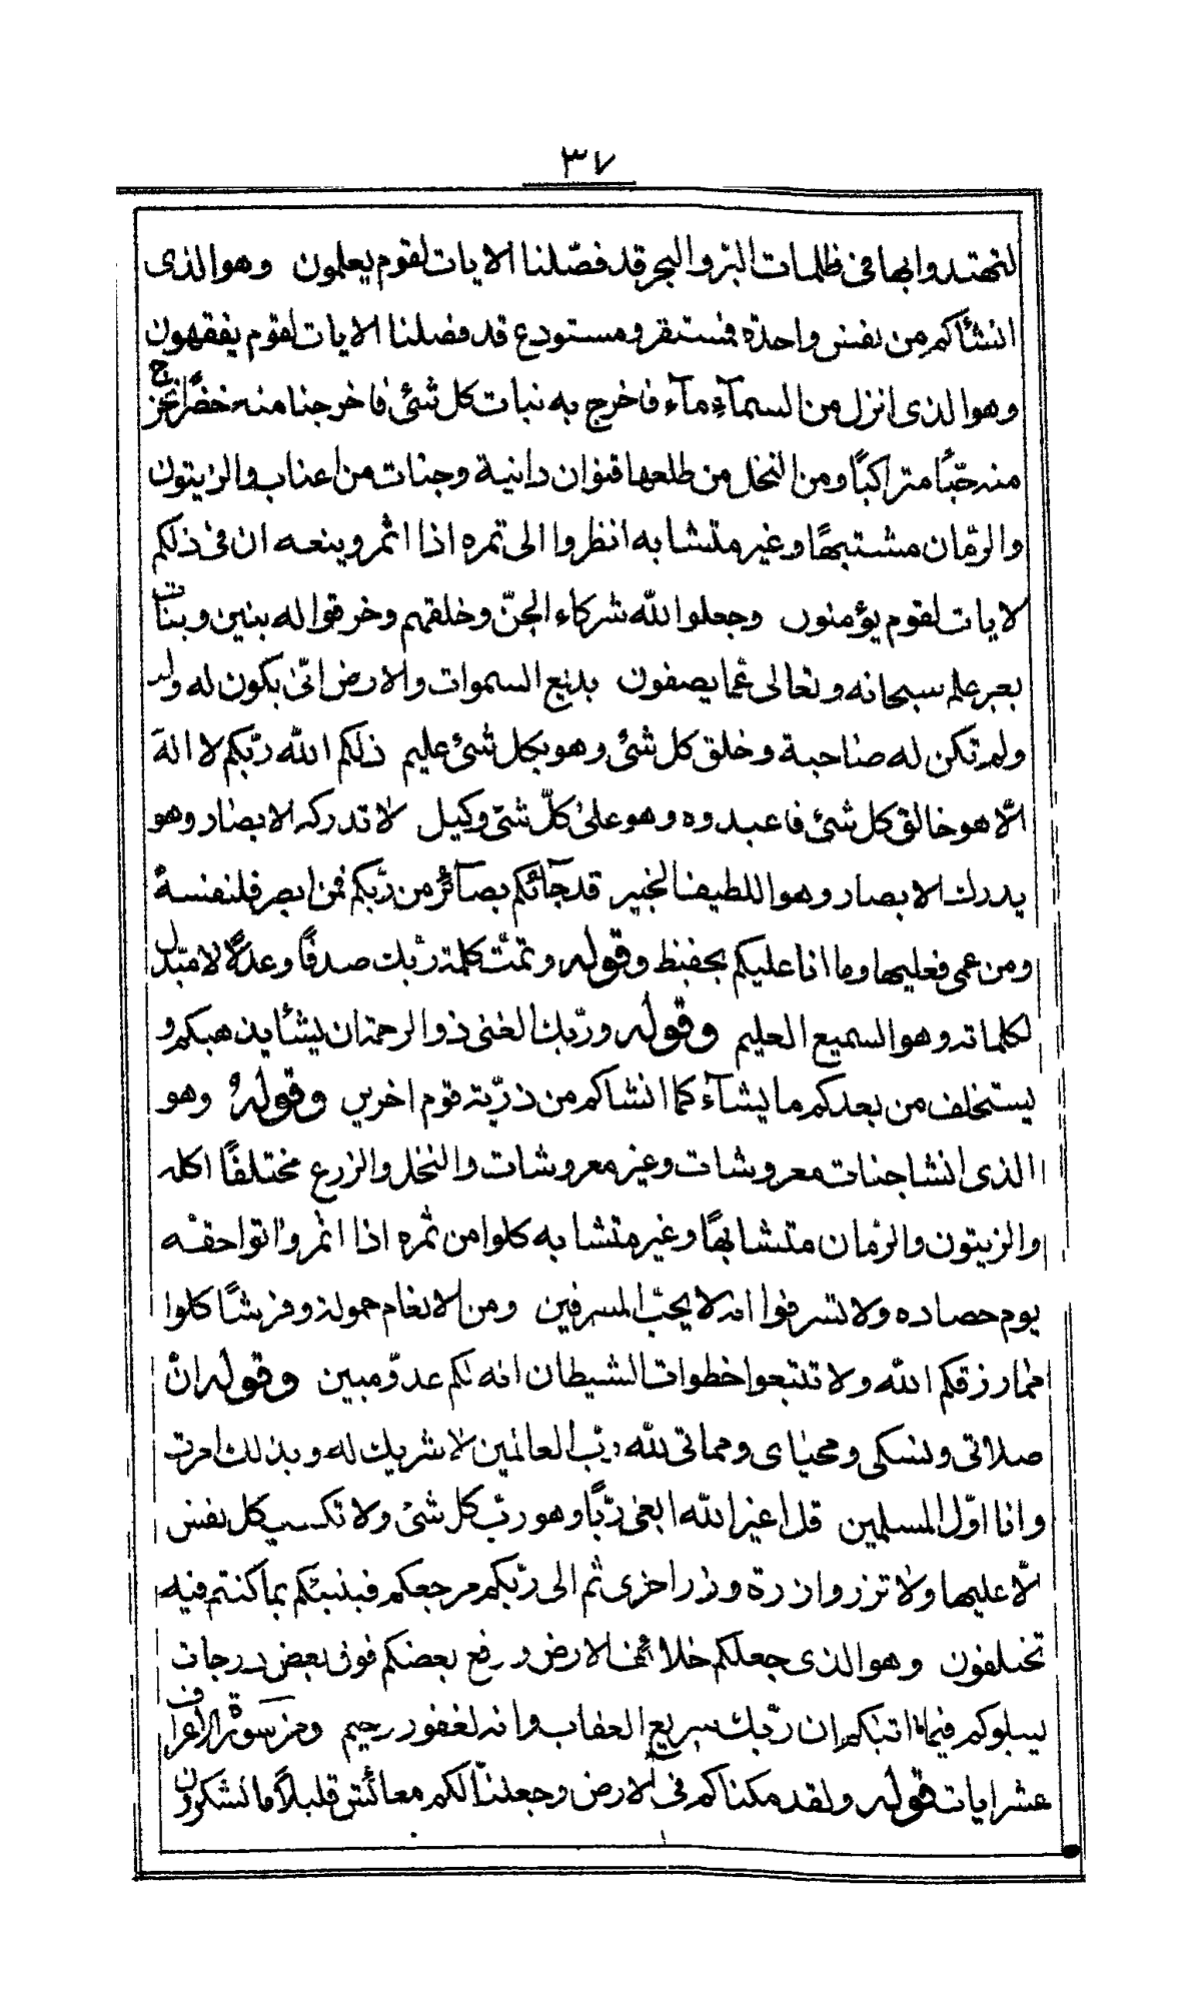 ٣٧
لتهتدوا بها فى ظلمات البرّ والبحر قد فصّلنا الايات لقوم يعلمون وهو الذى
انشأكم من نفس واحدة فمستقر ومستودع قد فصلنا الايات لقوم يفقهون
وهو الذى انزل من السمآء مآء فاخرج به نبات كل شئ فاخرجنا منه خضرًا نخرج
منه حبًّا متراكبًا ومن النخل من طلعها قنوان دانية وجنات من اعناب والزيتون
والرمّان مشتبهًا وغير متشابه انظروا الى ثمره اذا اثمر وينعه ان فى ذلكم
لايات لقوم يؤمنون وجعلوا لله شركاء الجنّ وخلقهم وخرقوا له بنين وبنات
بغير علم سبحانه وتعالى عمّا يصفون بديع السموات والارض انّى يكون له ولد
ولم تكن له صاحبة وخلق كل شئ وهو بكل شئ عليم ذلكم الله ربّكم لا اله
الّا هو خالق كل شئ فاعبدوه وهو على كلّ شئ وكيل لا تدركه الابصار وهو
يدرك الابصار وهو اللطيف الخبير قد جآئكم بصآئر من ربّكم فمن ابصر فلنفسه
ومن عمى فعليها وما انا عليكم بحفيظ وقوله وتمّت كلمة ربّك صدقًا وعدلًا لا مبدّل
لكلماته وهو السميع العليم وقوله وربّك الغنى ذو الرحمة ان يشأ يذهبكم و
يستخلف من بعدكم ما يشآء كما انشاكم من ذرّية قوم اخرين وقوله وهو
الذى انشا جنات معروشات وغير معروشات والنخل والزرع مختلفًا اكله
والزيتون والرمان متشابهًا وغير متشابه كلوا من ثمره اذا اثمر واتوا حقّه
يوم حصاده ولا تسرفوا انه لا يحبّ المسرفين ومن الانعام حمولة وفرشًا كلوا
ممّا رزقكم الله ولا تتبعوا خطوات الشيطان انه لكم عدوّ مبين وقوله انّ
صلاتى ونسكى ومحياى ومماتى لله ربّ العالمين لا شريك له وبذلك امرت
وانا اوّل المسلمين قل اغير الله ابغى ربًّا وهو ربّ كل شئ ولا تكسب كل نفس
الّا عليها ولا تزر وازرة وزر اخرى ثم الى ربّكم مرجعكم فينبئكم بما كنتم فيه
تختلفون وهو الذى جعلكم خلائف الارض ورفع بعضكم فوق بعض درجات
ليبلوكم فيما اتيكم ان ربّك سريع العقاب وانه لغفور رحيم ومن سورة الاعراف
عشر ايات قوله ولقد مكناكم فى الارض وجعلنا لكم معائش قليلًا ما تشكرون